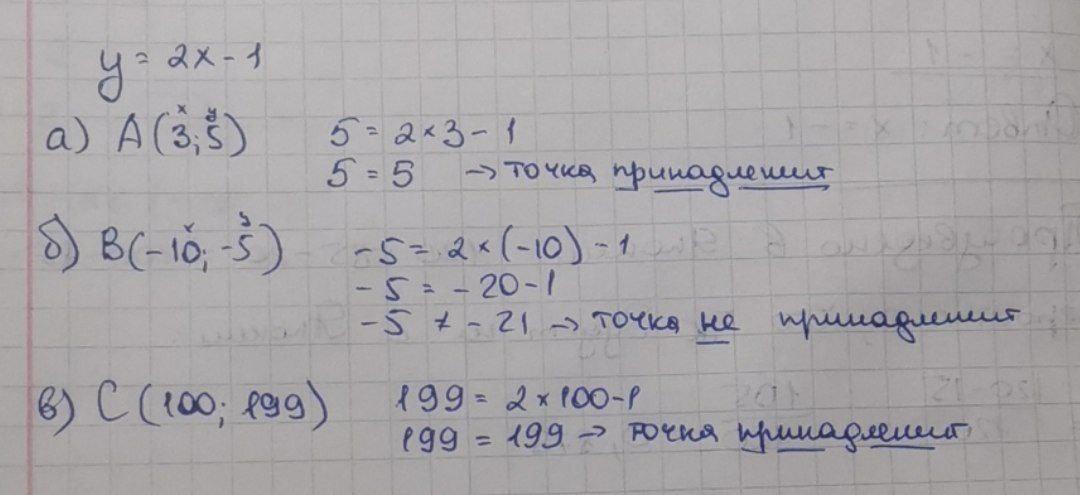 y = 2x - 1
а) A(3; 5) 5 = 2 × 3 - 1
x y
5 = 5 → точка принадлежит
б) B(-10; -5) -5 = 2 × (-10) - 1
x y
-5 = -20 - 1
-5 ≠ -21 → точка не принадлежит
в) C(100; 199) 199 = 2 × 100 - 1
199 = 199 → точка принадлежит